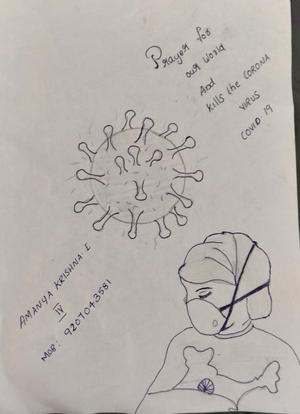 Prayer for
our world
And
kills the CORONA
VIRUS
COVID 19
AMANYA KRISHNA I
IV
MOB: 9207043581